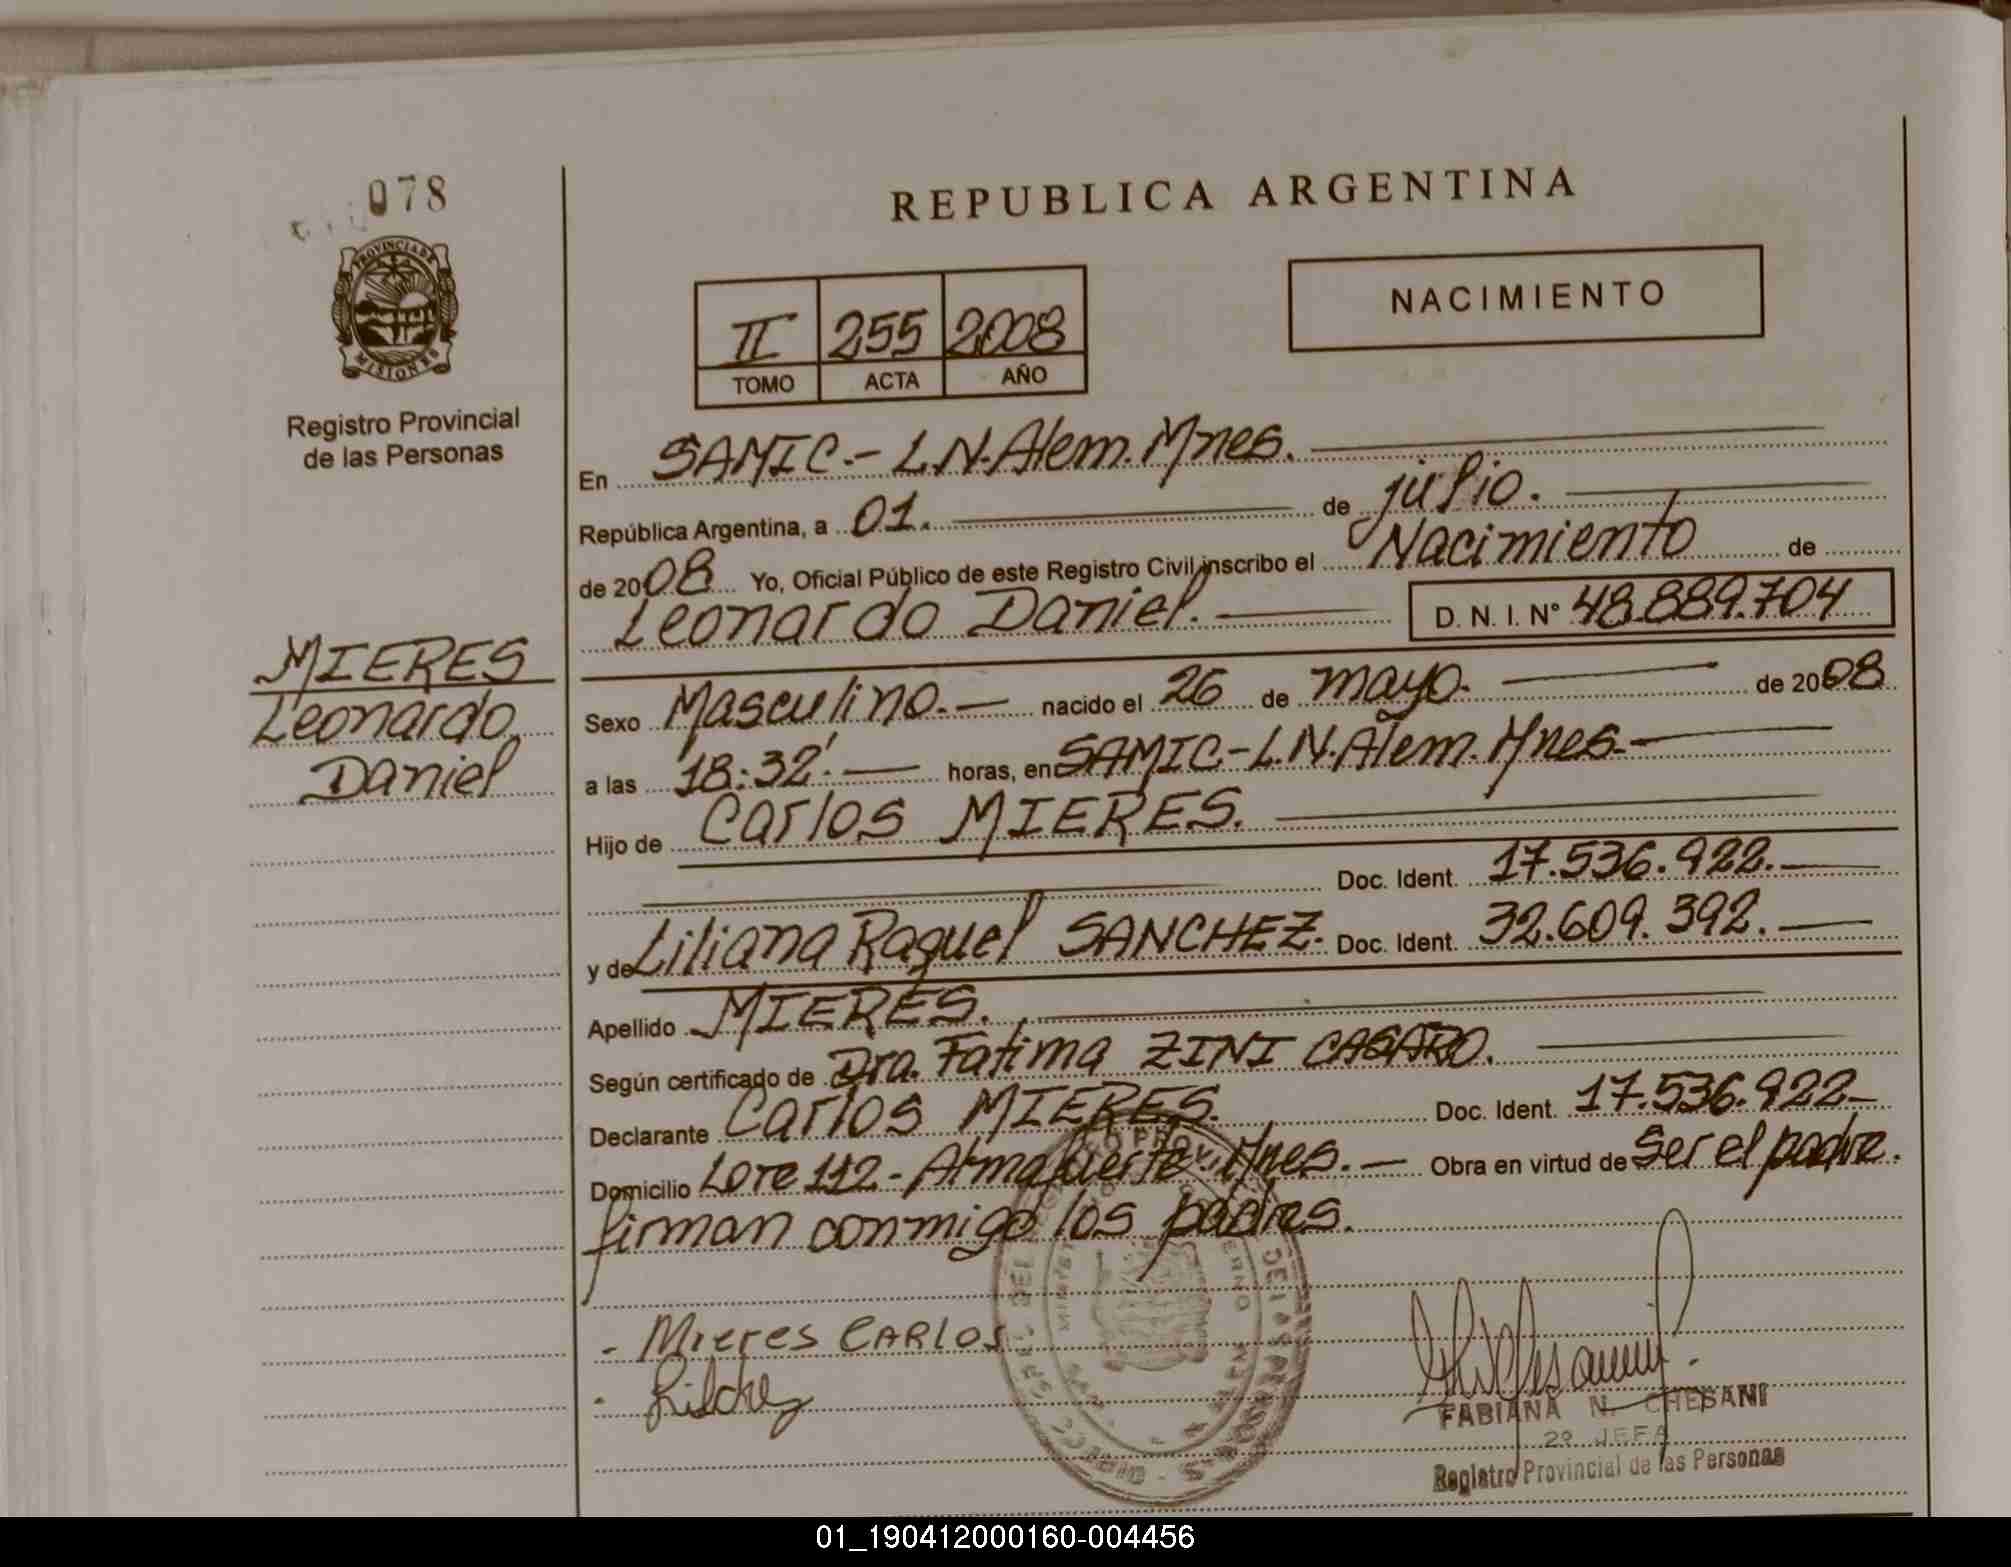 078
PROVINCIA DE
MISIONES
Registro Provincial
de las Personas
MIERES
Leonardo
Daniel
REPUBLICA ARGENTINA
NACIMIENTO
II 255 2008
TOMO ACTA AÑO
En SAMIC.- L.N.Alem.Mnes.
República Argentina, a 01. de julio.
de 2008 Yo, Oficial Público de este Registro Civil inscribo el Nacimiento de
Leonardo Daniel. D. N. I. N° 48.889.704
Sexo Masculino.- nacido el 26 de mayo. de 2008
a las 18:32'. horas, en SAMIC-L.N.Alem.Mnes.-
Hijo de Carlos MIERES.
Doc. Ident. 17.536.922.
y de Liliana Raquel SANCHEZ. Doc. Ident. 32.609.392.
Apellido MIERES.
Según certificado de Dra. Fatima ZINI CASARO.
Declarante Carlos MIERES. Doc. Ident. 17.536.922
Domicilio Lote 112-Almafuerte-Mnes.- Obra en virtud de Ser el padre.
firman conmigo los padres.
- Mieres CARLOS
FABIANA N. CHESANI
2º JEFA
Registro Provincial de las Personas
01_190412000160-004456